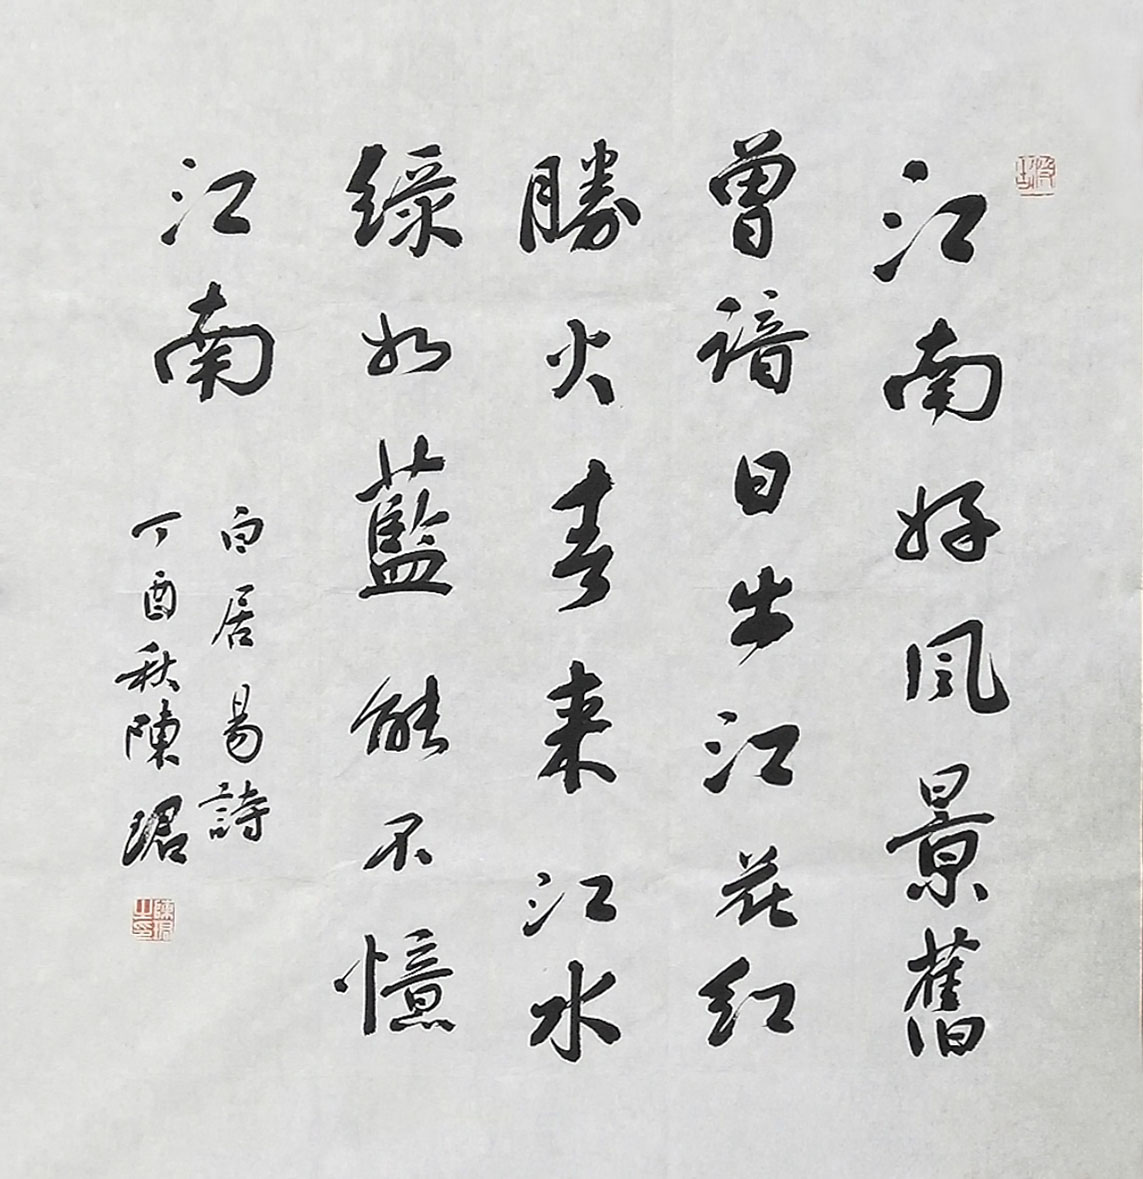 江南好風景舊
曾諳日出江花红
勝火春来江水
綠如藍能不憶
江南
白居易詩
丁酉秋陳珺
陳珺之印